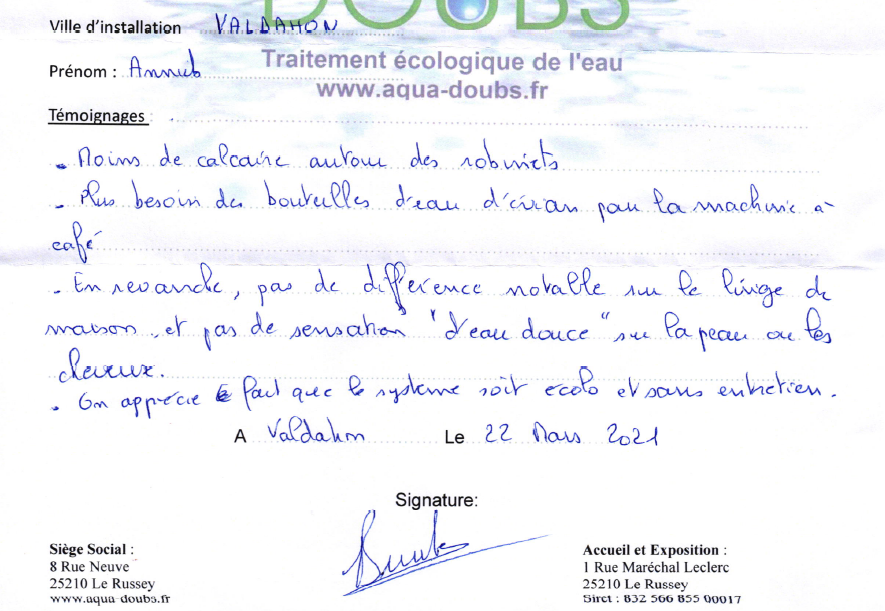 DOUBS
Ville d'installation VALDAHON
Traitement écologique de l'eau
Prénom : Annick
www.aqua-doubs.fr
Témoignages :
- Moins de calcaire autour des robinets
- Plus besoin des bouteilles d'eau d'évian pour la machine à
café
- En revanche, pas de différence notable sur le linge de
maison, et pas de sensation "d'eau douce" sur la peau ou les
cheveux.
- On apprécie le fait que le système soit écolo et sans entretien.
A Valdahon Le 22 Mars 2021
Signature:
Siège Social :
8 Rue Neuve
25210 Le Russey
www.aqua-doubs.fr
Accueil et Exposition :
1 Rue Maréchal Leclerc
25210 Le Russey
Siret : 832 566 855 00017